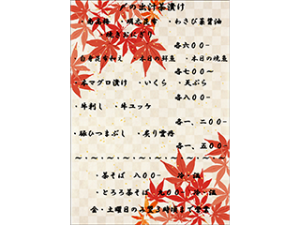 〆の出汁茶漬け
・南高梅 ・明太昆布 ・わさび醤油
・焼きおにぎり
各六〇〇~
・本日の鮮魚 ・本日の焼魚
各七〇〇~
・本マグロ漬け ・いくら ・天ぷら
各八〇〇~
・牛刺し ・牛ユッケ
各一、二〇〇~
・ひつまぶし ・炙り雲丹
各一、五〇〇~
・茶そば 八〇〇~ 冷・温
・とろろ茶そば 九〇〇~ 冷・温
金・土曜日のみ翌3時頃まで営業